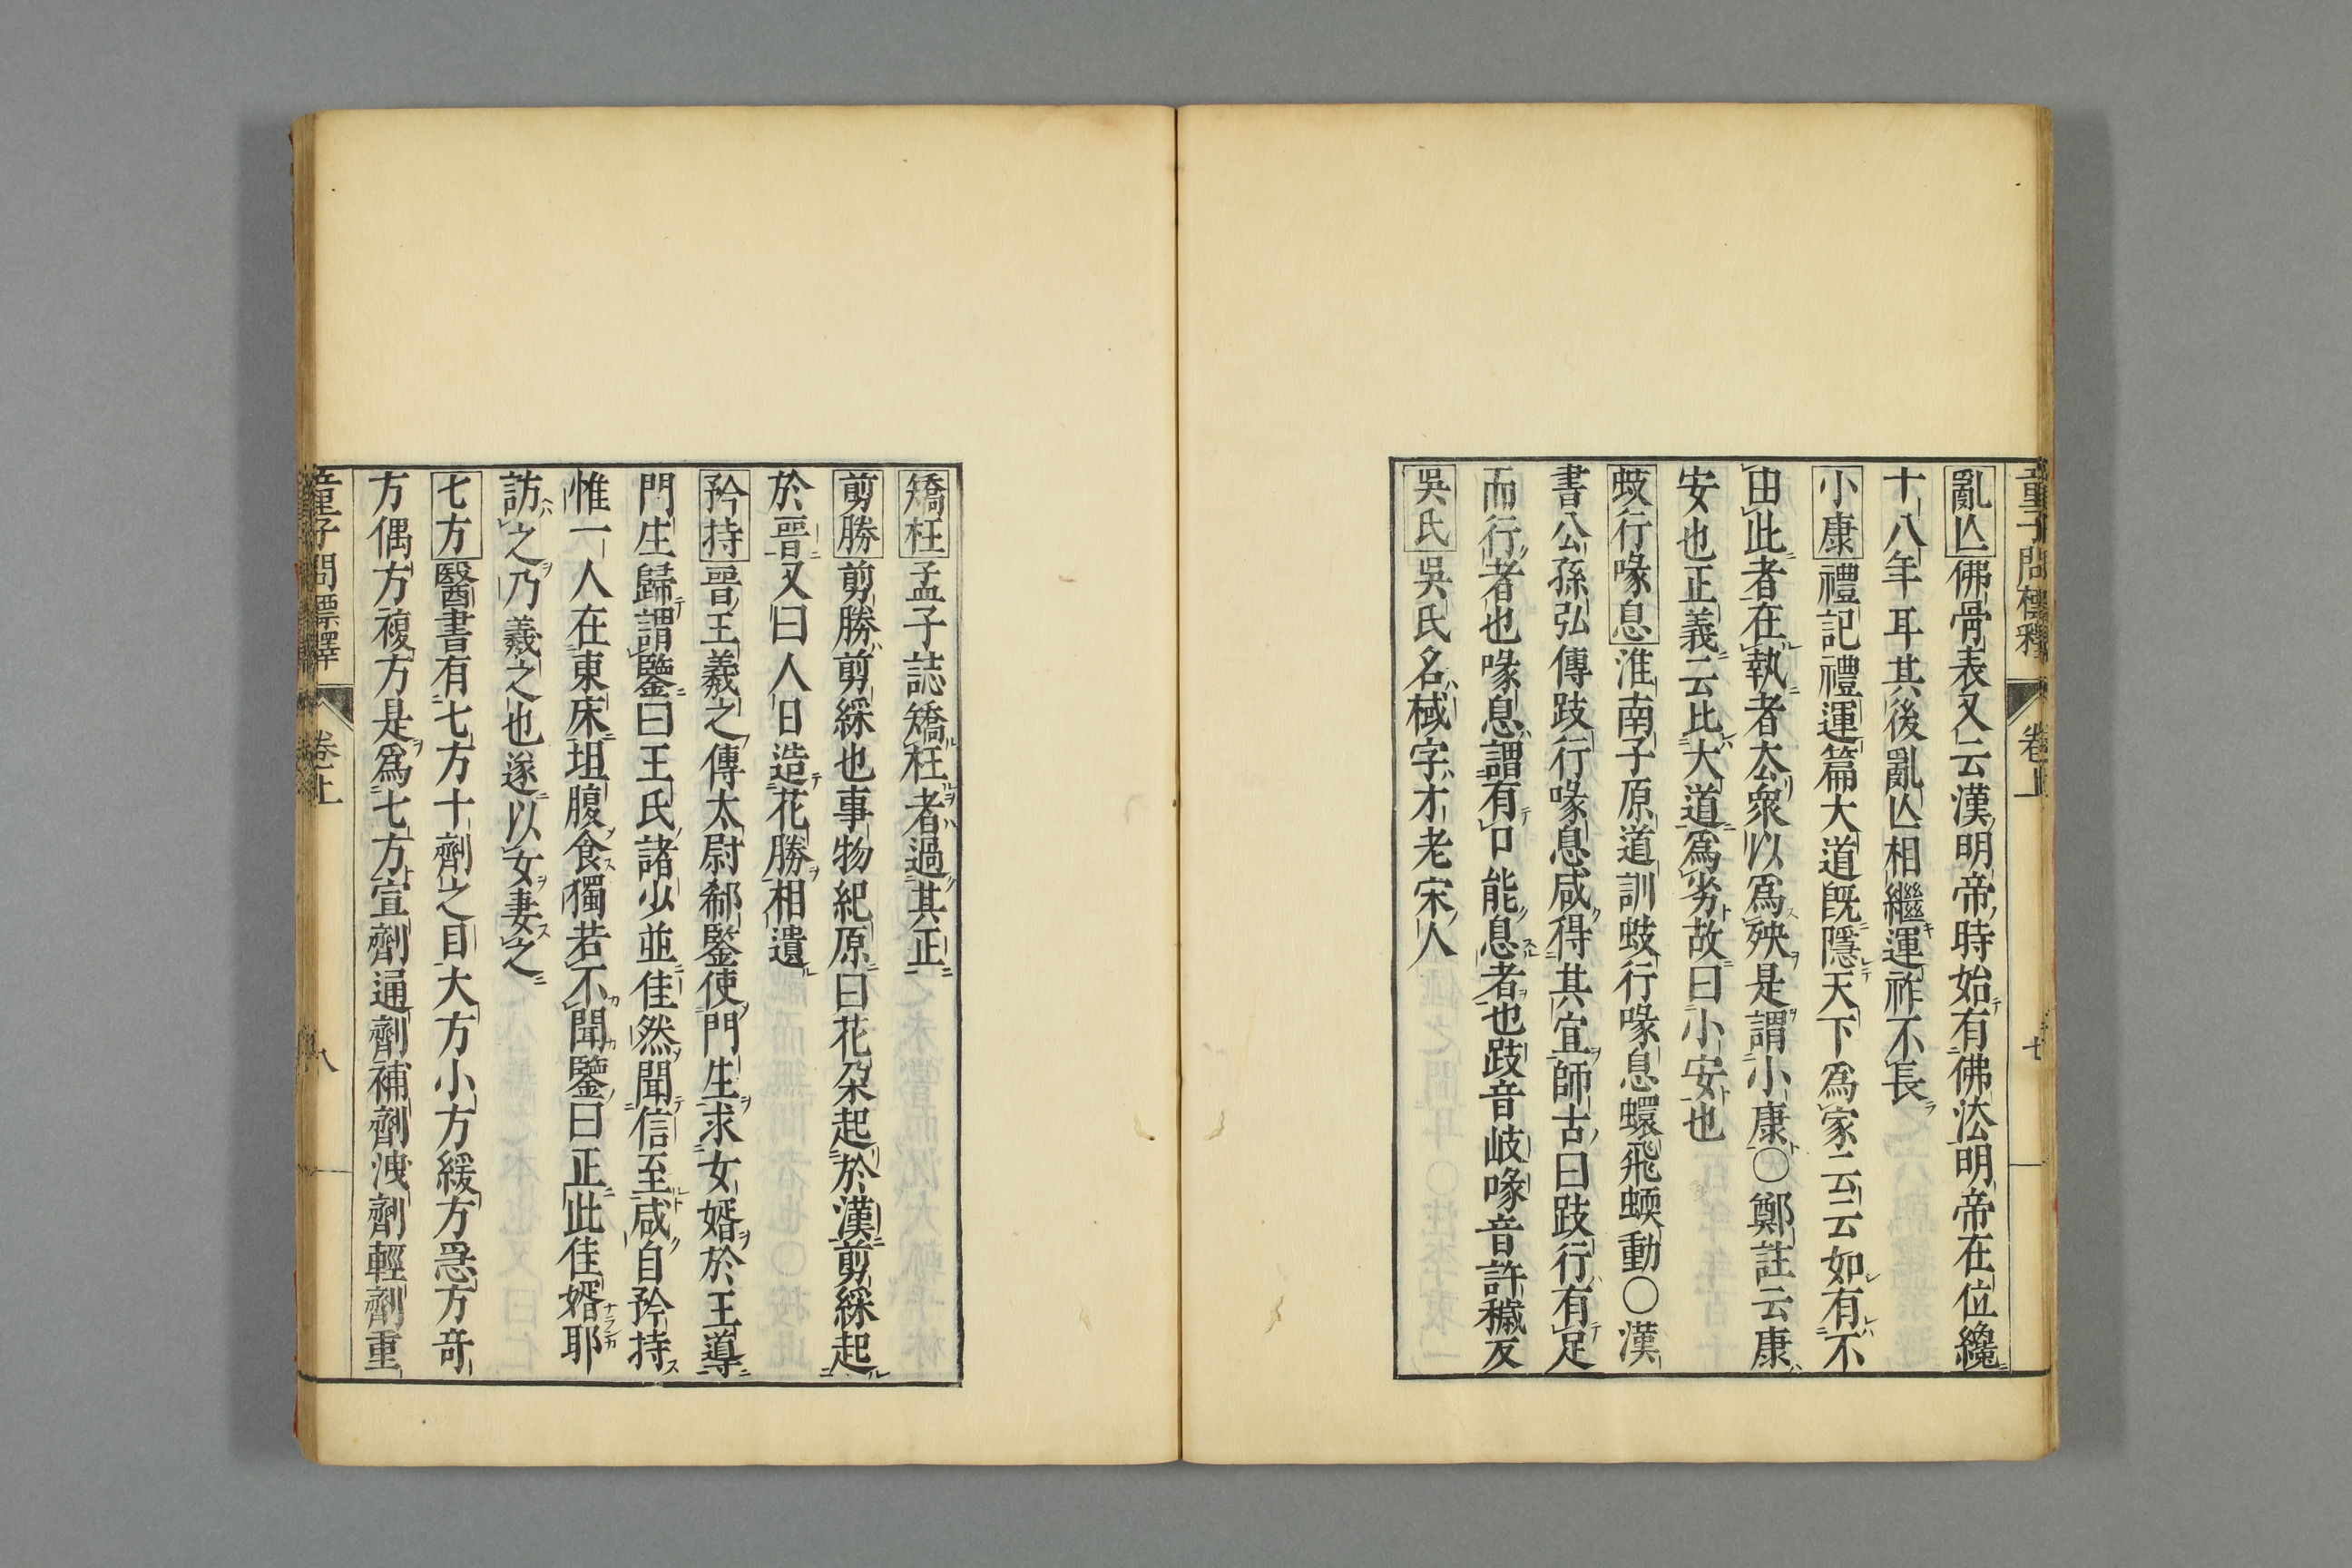 童子問標釋 卷上 七
亂亾佛骨表又云漢明帝時始有佛法明帝在位纔
十八年耳其後亂亾相繼運祚不長
小康禮記禮運篇大道旣隱天下爲家云云如有不
由此者在執者去衆以爲殃是謂小康〇鄭註云康
安也正義云比大道爲劣故曰小安也
蚑行喙息淮南子原道訓蚑行喙息蠉飛蝡動〇漢
書公孫弘傳跂行喙息咸得其宜師古曰跂行有足
而行者也喙息謂有口能息者也跂音岐喙音許穢反
吳氏吳氏名棫字才老宋人
矯枉孟子誌矯枉者過其正
剪勝剪勝剪綵也事物紀原曰花朶起於漢剪綵起
於晋又曰人日造花勝相遺
矜持晋王羲之傳太尉郗鑒使門生求女婿於王導
門生歸謂鑒曰王氏諸少並佳然聞信至咸自矜持
惟一人在東床坦腹食獨若不聞鑒曰正此佳婿耶
訪之乃羲之也遂以女妻之
七方醫書有七方十劑之目大方小方緩方急方奇
方偶方複方是爲七方宣劑通劑補劑洩劑輕劑重
童子問標釋 卷上 八